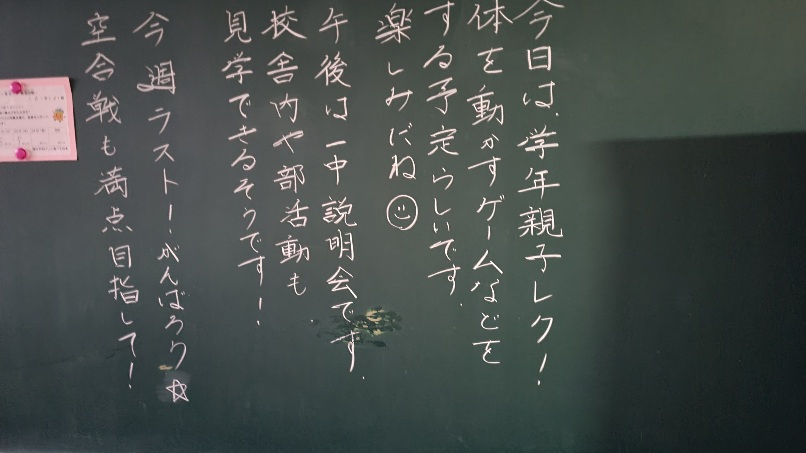 今日は、学年親子レク!
体を動かすゲームなどを
する予定らしいです。
楽しみだね
午後は一中説明会です。
校舎内や部活動も
見学できるそうです!
今週ラスト!がんばろう☆
空合戦も満点目指して!